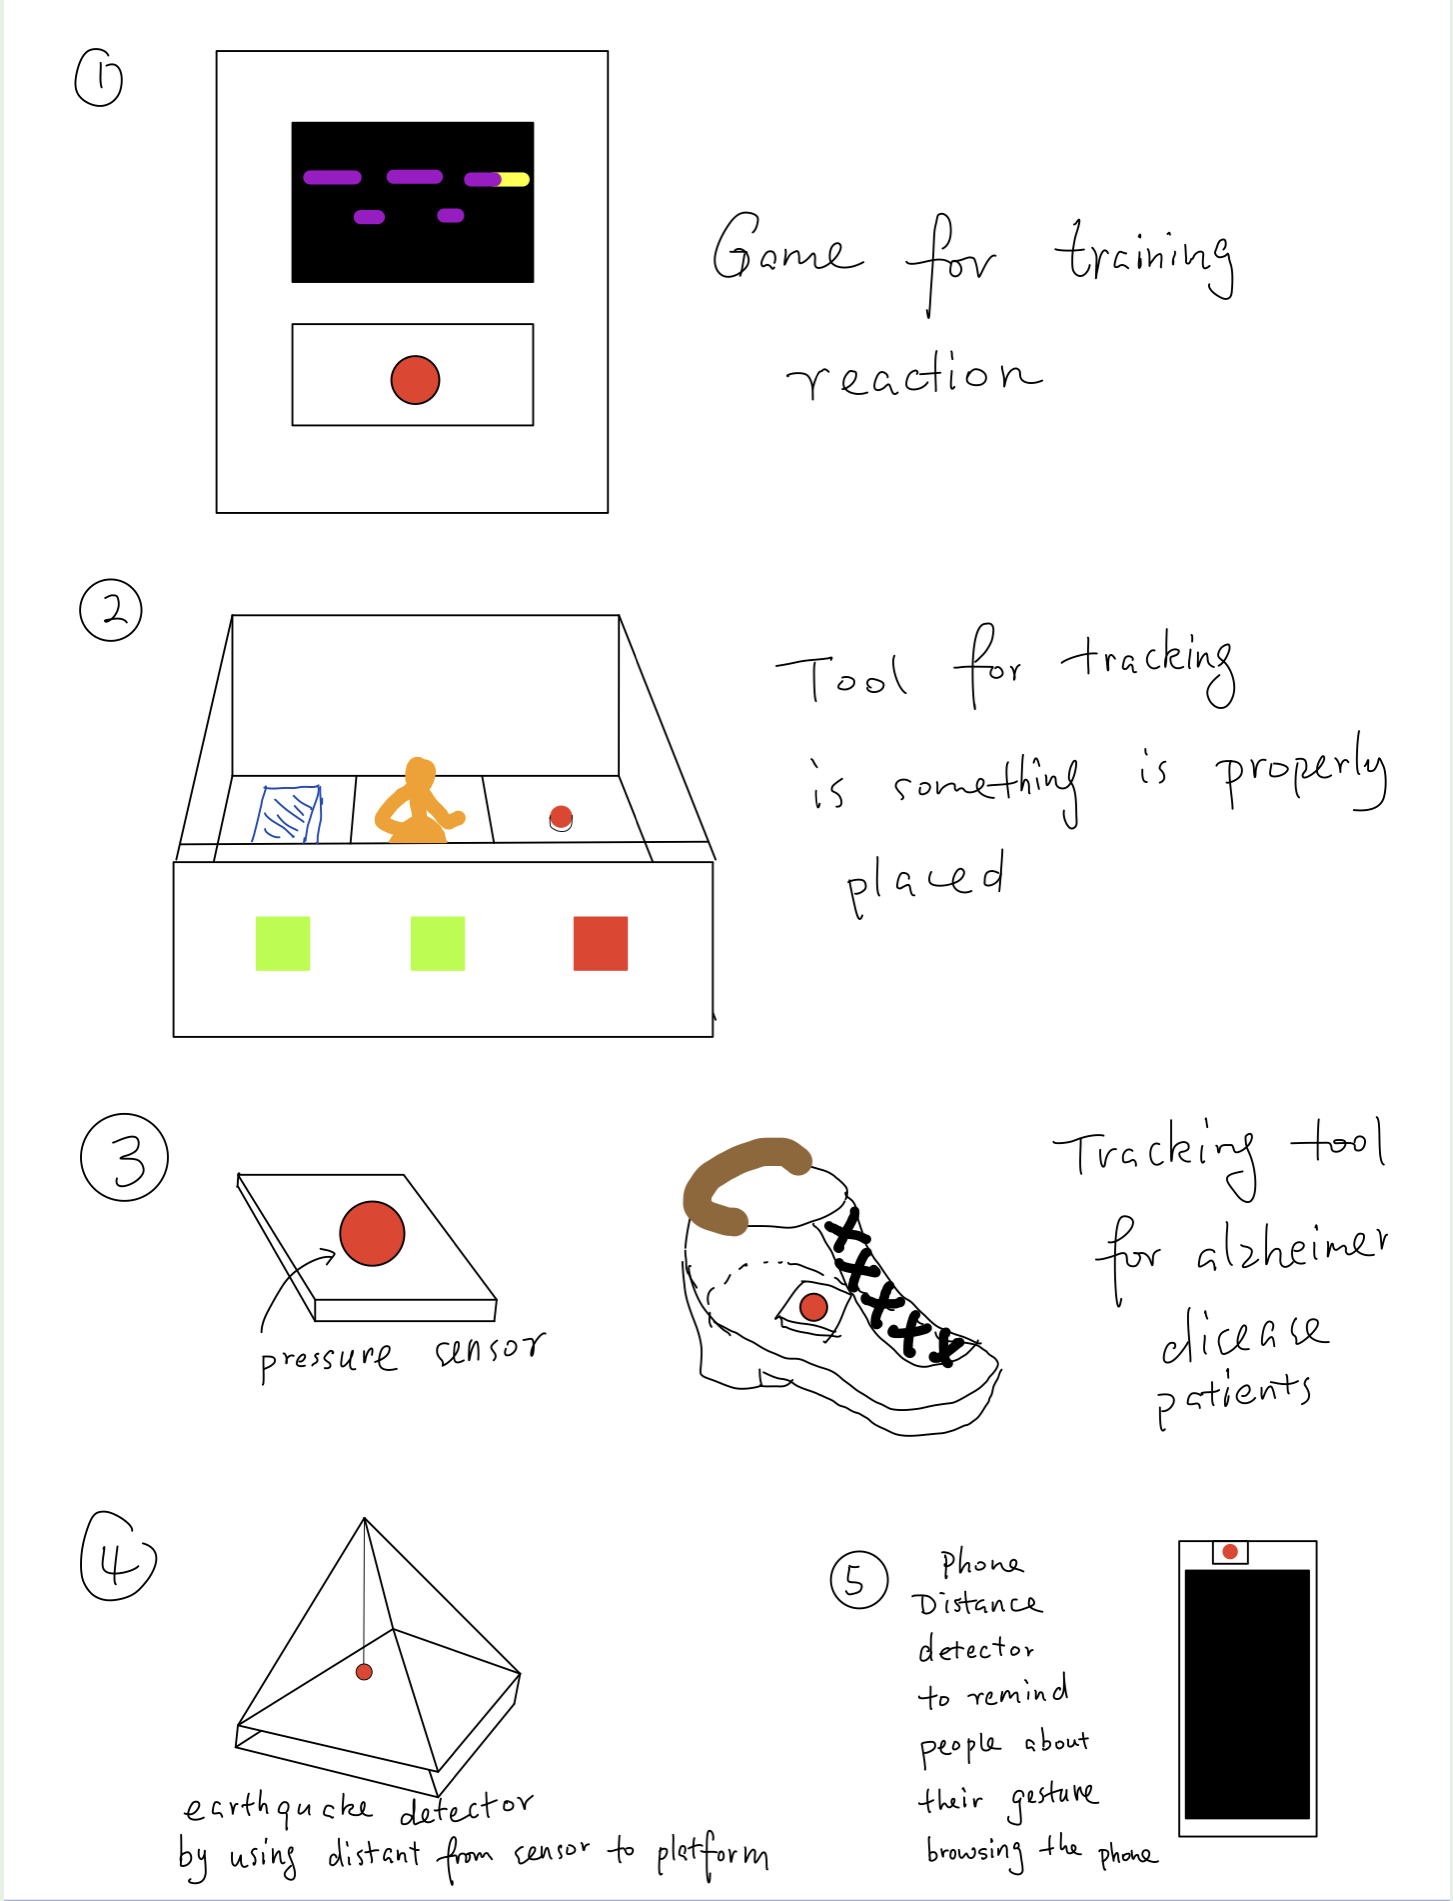 1
Game for training
reaction
2
Tool for tracking
is something is properly
placed
3
pressure sensor
Tracking tool
for alzheimer
dicease
patients
4
earthquake detector
by using distant from sensor to platform
5
Phone
Distance
detector
to remind
people about
their gesture
browsing the phone